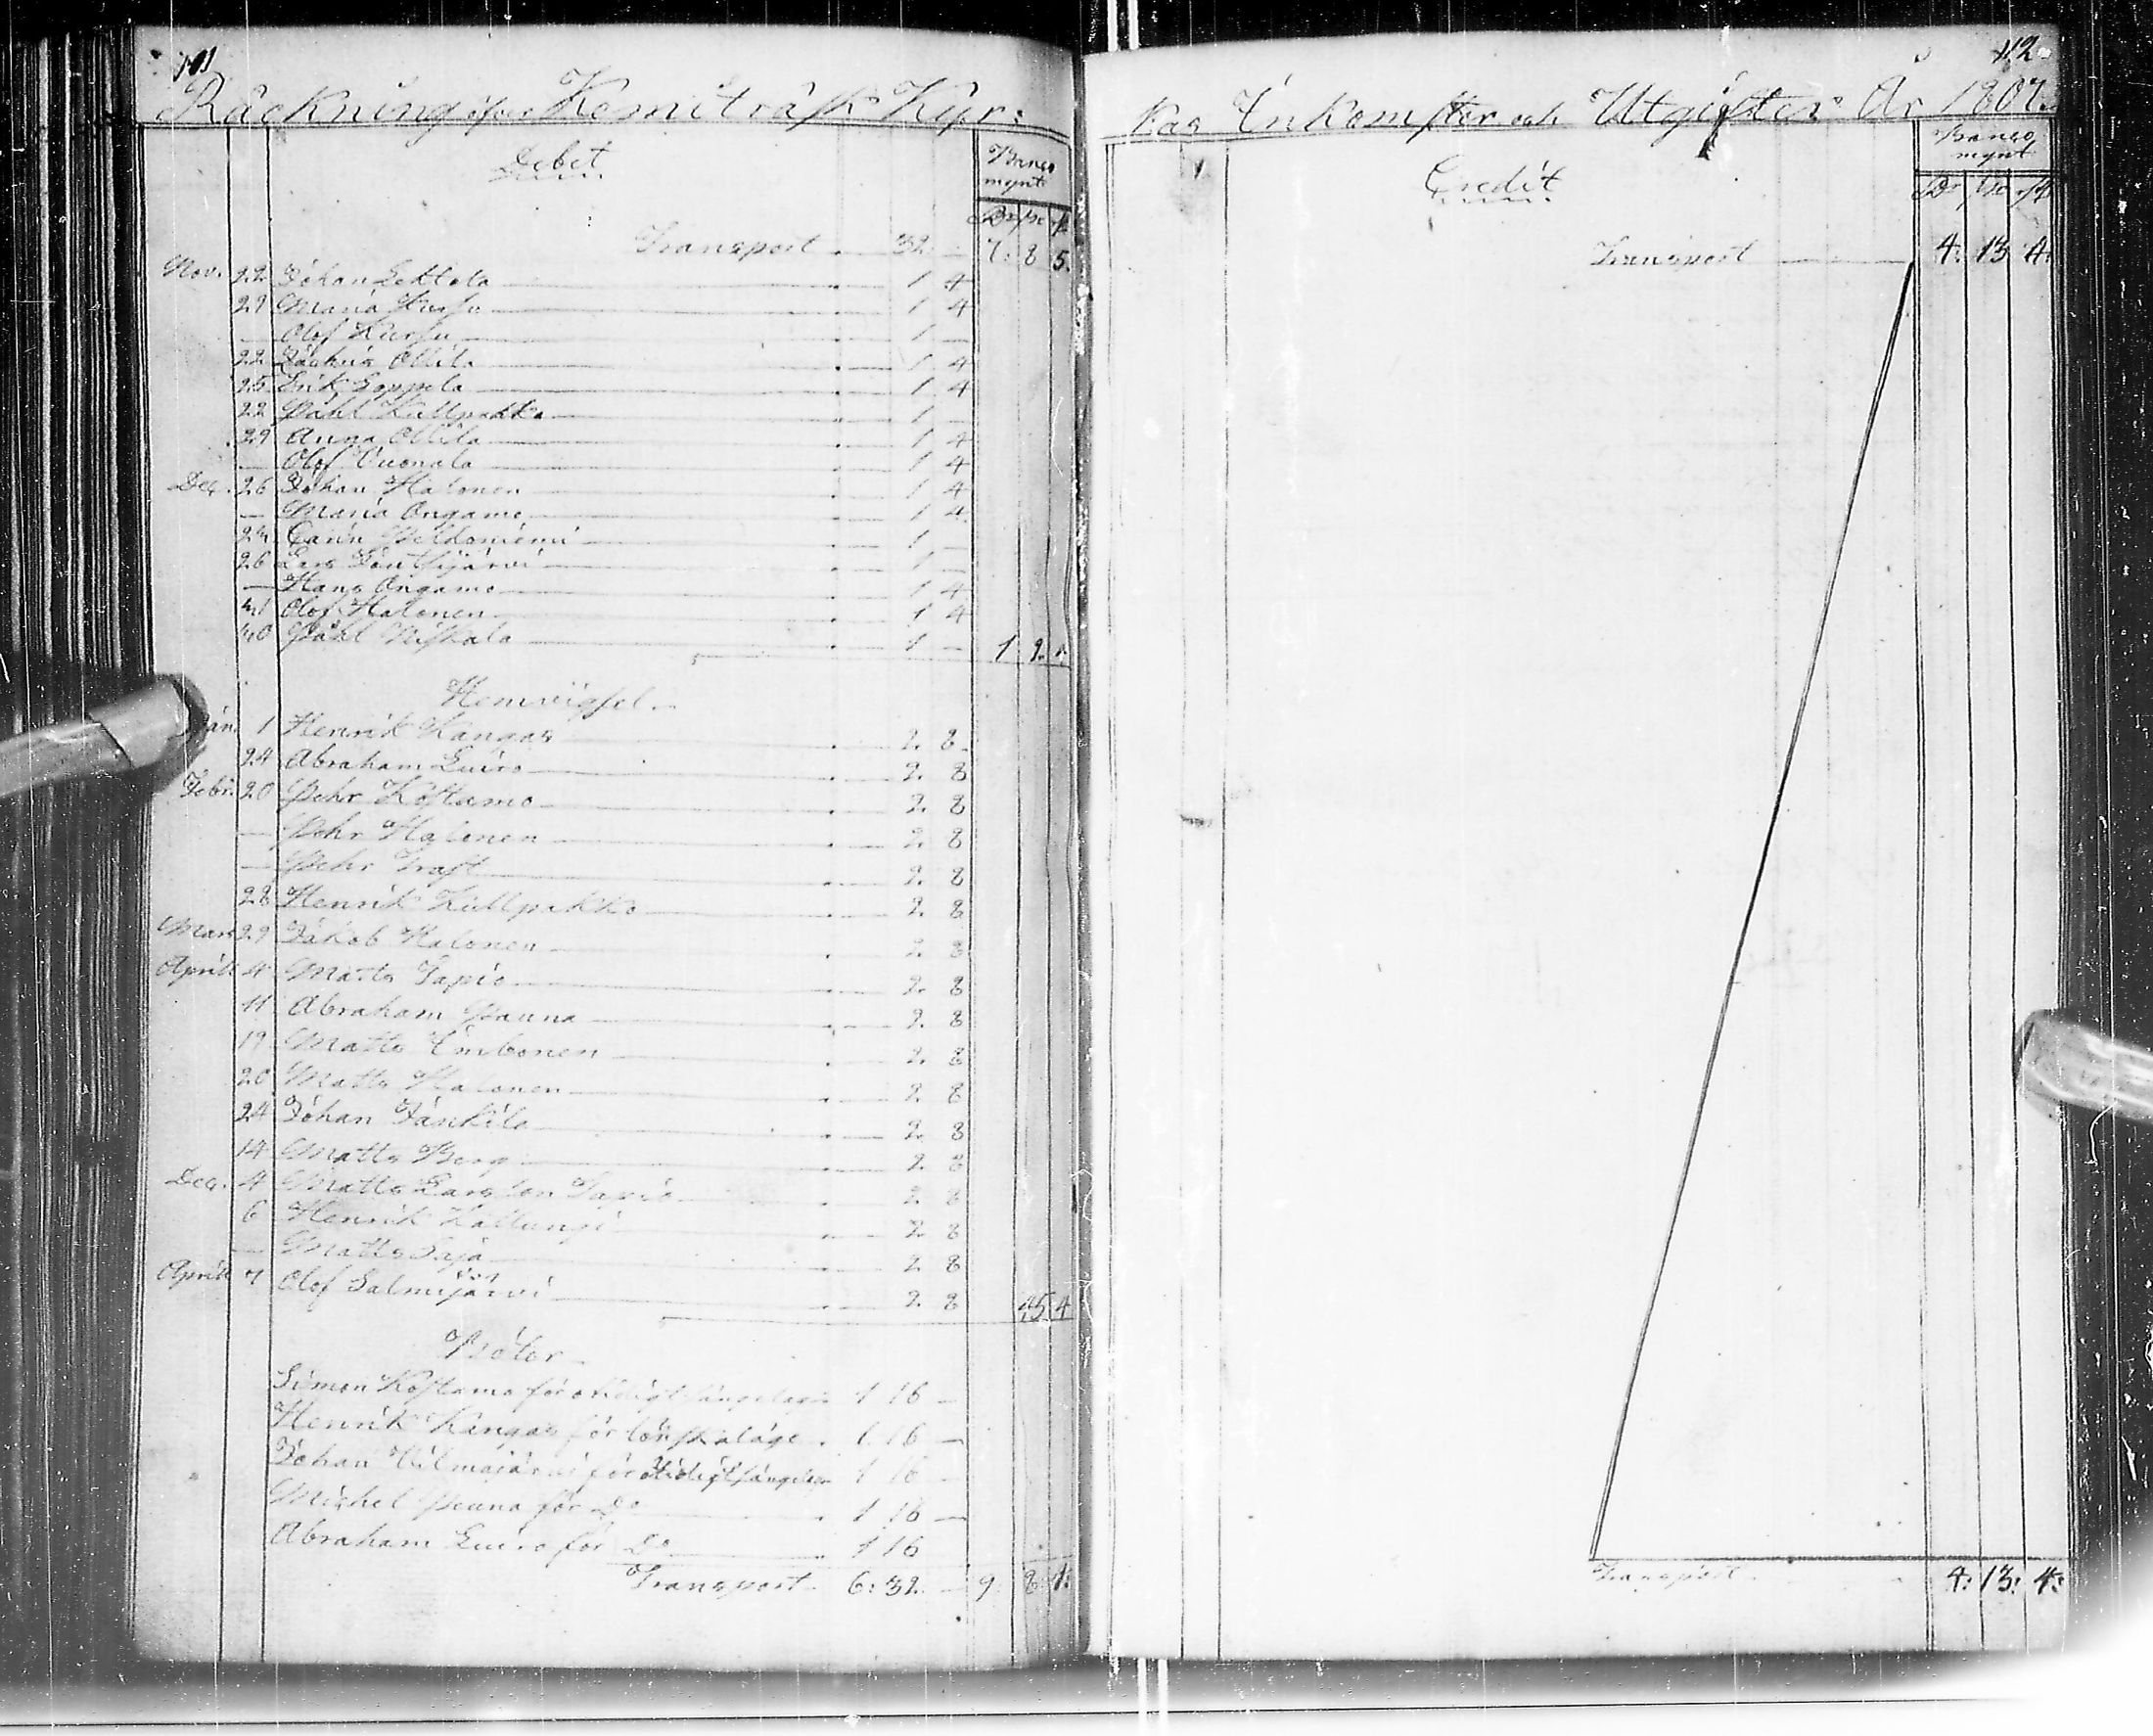 Räckning öfver Kemiträsk Kyr:
Debet
Banco mynt
Transport 32. — 7: 8 5.
Nov. 22 Johan Lehtola 1 4
29 Maria Kursu 1 4
— Olof Kursu 1 —
22 Zachris Ollila 1 4
25 Erik Leppela 1 4
22 Påhl Kullpakko 1 —
29 Anna Ollila 1 4
— Olof Vuonala 1 4
Dec. 26 Johan Halonen 1 4
— Maria Ongamo 1 4
Carin Peldoniemi 1 —
26 Lars 1 —
— Hans Ongamo 1 4
Olof Halonen 1 4
Påhl Niskala 1 —
Hemvigsel.
Jan. 1 Henrik Kangas 2. 8.
24 Abraham Luiro 2. 8
Febr. 20 Pehr Kostamo 2. 8
— Pehr Halonen 2. 8
— Pehr Trast 2. 8
28 Henrik Kullpakko 2. 8
Mars 29 Jakob Halonen 2. 8
Aprill 4 Matts Tapio 2. 8
11 Abraham Pauna 2. 8
19 Matts Imbonen 2. 8
20 Matts Halonen 2. 8
24 Johan Jänkilä 2. 8
14 Matts Berg 2. 8
Dec. 4 Matts Larsson Tapio 2. 8
6 Henrik Kallungi 2. 8
— Matts Saja 2. 8
Aprill 7 Olof Salmijärvi 2. 8
Böter
Simon Kostamo för otidigt sängelag 1 16 —
Henrik Kangas för lönskaläge 1. 16 —
Johan Vilmajärvi för otidigt sängelag 1 16 —
Michel Pauna för Do 1 16 —
Abraham Luiro för Do 1 16
Transport 6: 32. — 9: 8
112.
kas Inkomster och Utgifter År 1807.
Credit
Banco mynt
Transport 4: 13: 4:
Transport 4: 13: 4: